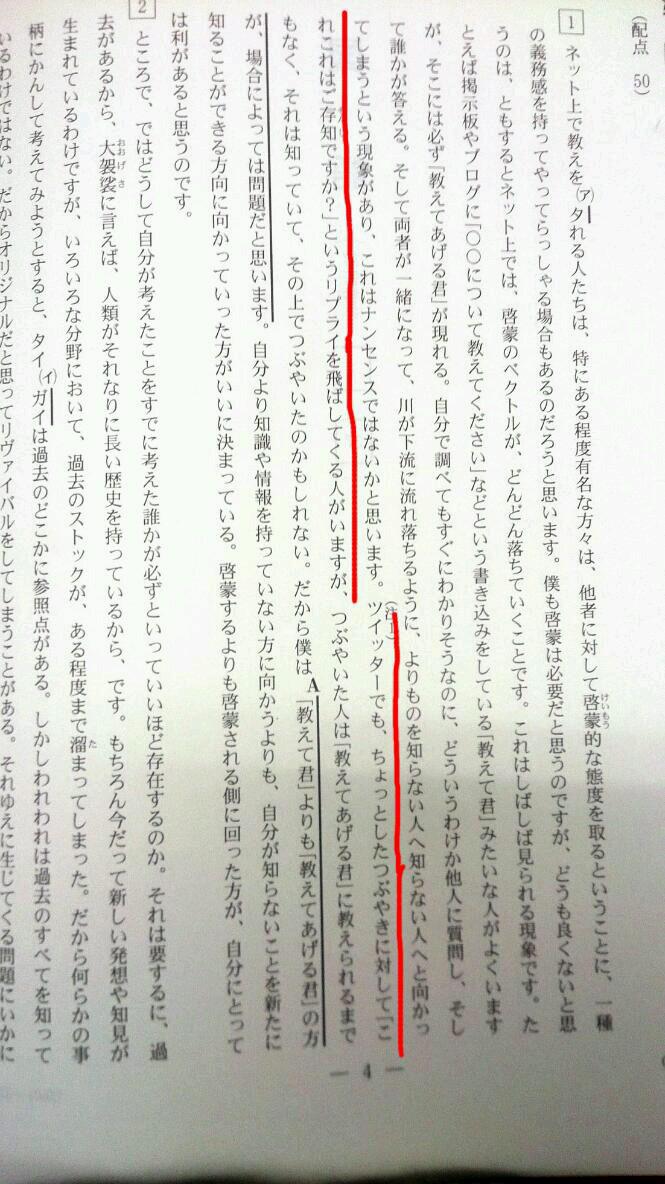 （配点　50）
1　ネット上で教えを㋐タれる人たちは、特にある程度有名な方々は、他者に対して啓蒙的な態度を取るということに、一種
の義務感を持ってやってらっしゃる場合もあるのだろうと思います。僕も啓蒙は必要だと思うのですが、どうも良くないと思
うのは、ともするとネット上では、啓蒙のベクトルが、どんどん落ちていくことです。これはしばしば見られる現象です。た
とえば掲示板やブログに「○○について教えてください」などという書き込みをしている「教えて君」みたいな人がよくいます
が、そこには必ず「教えてあげる君」が現れる。自分で調べてもすぐにわかりそうなのに、どういうわけか他人に質問し、そし
て誰かが答える。そして両者が一緒になって、川が下流に流れ落ちるように、よりものを知らない人へ知らない人へと向かっ
てしまうという現象があり、これはナンセンスではないかと思います。ツイッターでも、ちょっとしたつぶやきに対して「こ
れこれはご存知ですか？」というリプライを飛ばしてくる人がいますが、つぶやいた人は「教えてあげる君」に教えられるまで
もなく、それは知っていて、その上でつぶやいたのかもしれない。だから僕はA「教えて君」よりも「教えてあげる君」の方
が、場合によっては問題だと思います。自分より知識や情報を持っていない方に向かうよりも、自分が知らないことを新たに
知ることができる方向に向かっていった方がいいに決まっている。啓蒙するよりも啓蒙される側に回った方が、自分にとって
は利があると思うのです。
2　ところで、ではどうして自分が考えたことをすでに考えた誰かが必ずといっていいほど存在するのか。それは要するに、過
去があるから、大袈裟に言えば、人類がそれなりに長い歴史を持っているから、です。もちろん今だって新しい発想や知見が
生まれているわけですが、いろいろな分野において、過去のストックが、ある程度まで溜まってしまった。だから何らかの事
柄にかんして考えてみようとすると、タイ㋑ガイは過去のどこかに参照点がある。しかしわれわれは過去のすべてを知って
いるわけではない。だからオリジナルだと思ってリヴァイバルをしてしまうことがある。それゆえに生じてくる問題にいかに
— 4 —